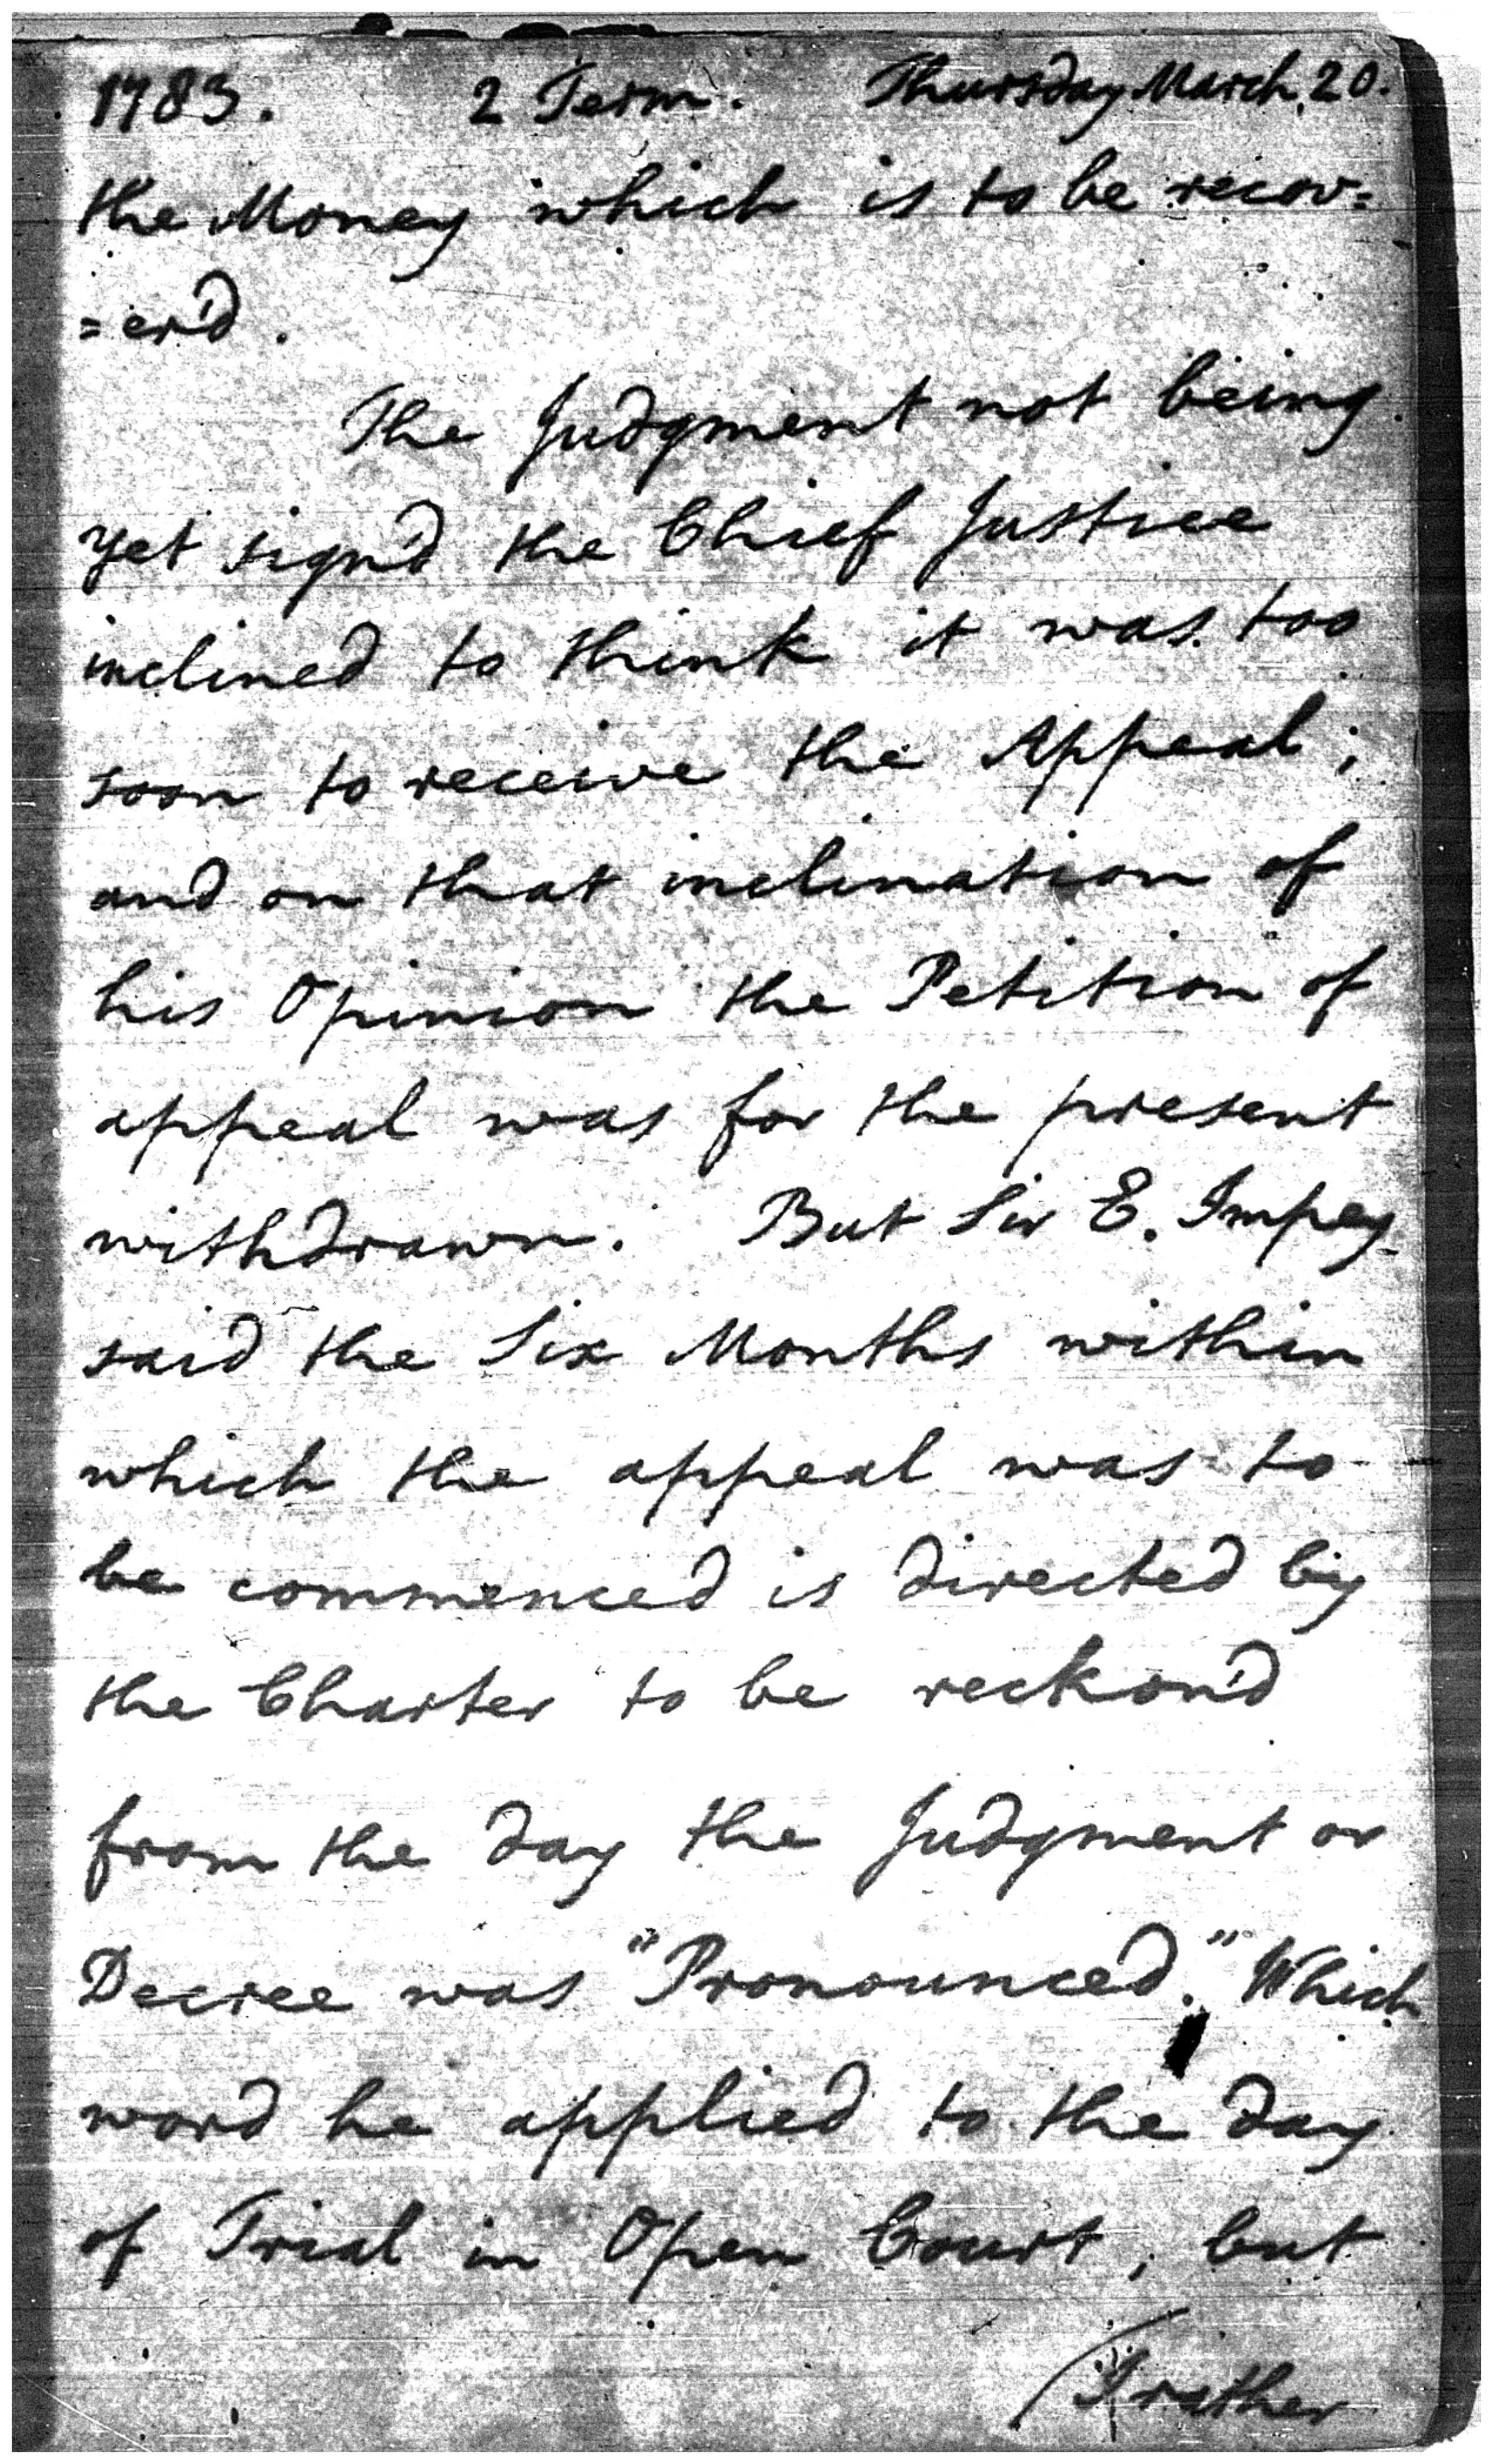 1783. 2 Term. Thursday March 20.
the Money which is to be recov=
=er'd.
The Judgment not being
yet sign'd the Chief Justice
inclined to think it was too
soon to receive the Appeal;
and on that inclination of
his Opinion the Petition of
appeal was for the present
withdrawn. But Sir E. Impey
said the Six Months within
which the appeal was to
be commenced is directed by
the Charter to be reckon'd
from the day the Judgment or
Decree was "Pronounced." Which
word he applied to the day
of Trial in Open Court, but
I rather